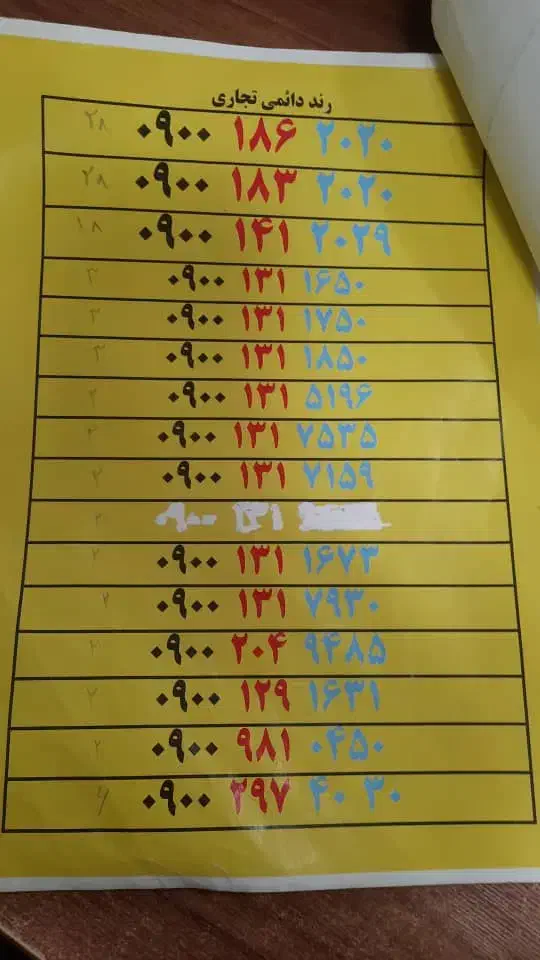 رند دائمی تجاری
۰۹۰۰ ۱۸۶ ۲۰۲۰ ۲۸
۰۹۰۰ ۱۸۳ ۲۰۲۰ ۲۸
۰۹۰۰ ۱۴۱ ۲۰۲۹ ۱۸
۰۹۰۰ ۱۳۱ ۱۶۵۰ ۳
۰۹۰۰ ۱۳۱ ۱۷۵۰ ۳
۰۹۰۰ ۱۳۱ ۱۸۵۰ ۳
۰۹۰۰ ۱۳۱ ۵۱۹۶ ۲
۰۹۰۰ ۱۳۱ ۷۵۳۵
۰۹۰۰ ۱۳۱ ۷۱۵۹
۰۹۰۰ ۱۳۱
۰۹۰۰ ۱۳۱ ۱۶۷۳ ۲
۰۹۰۰ ۱۳۱ ۷۹۳۰ ۲
۰۹۰۰ ۲۰۴ ۹۴۸۵ ۲
۰۹۰۰ ۱۲۹ ۱۶۳۱ ۲
۰۹۰۰ ۹۸۱ ۰۴۵۰ ۲
۰۹۰۰ ۳۹۷ ۴۰ ۳۰